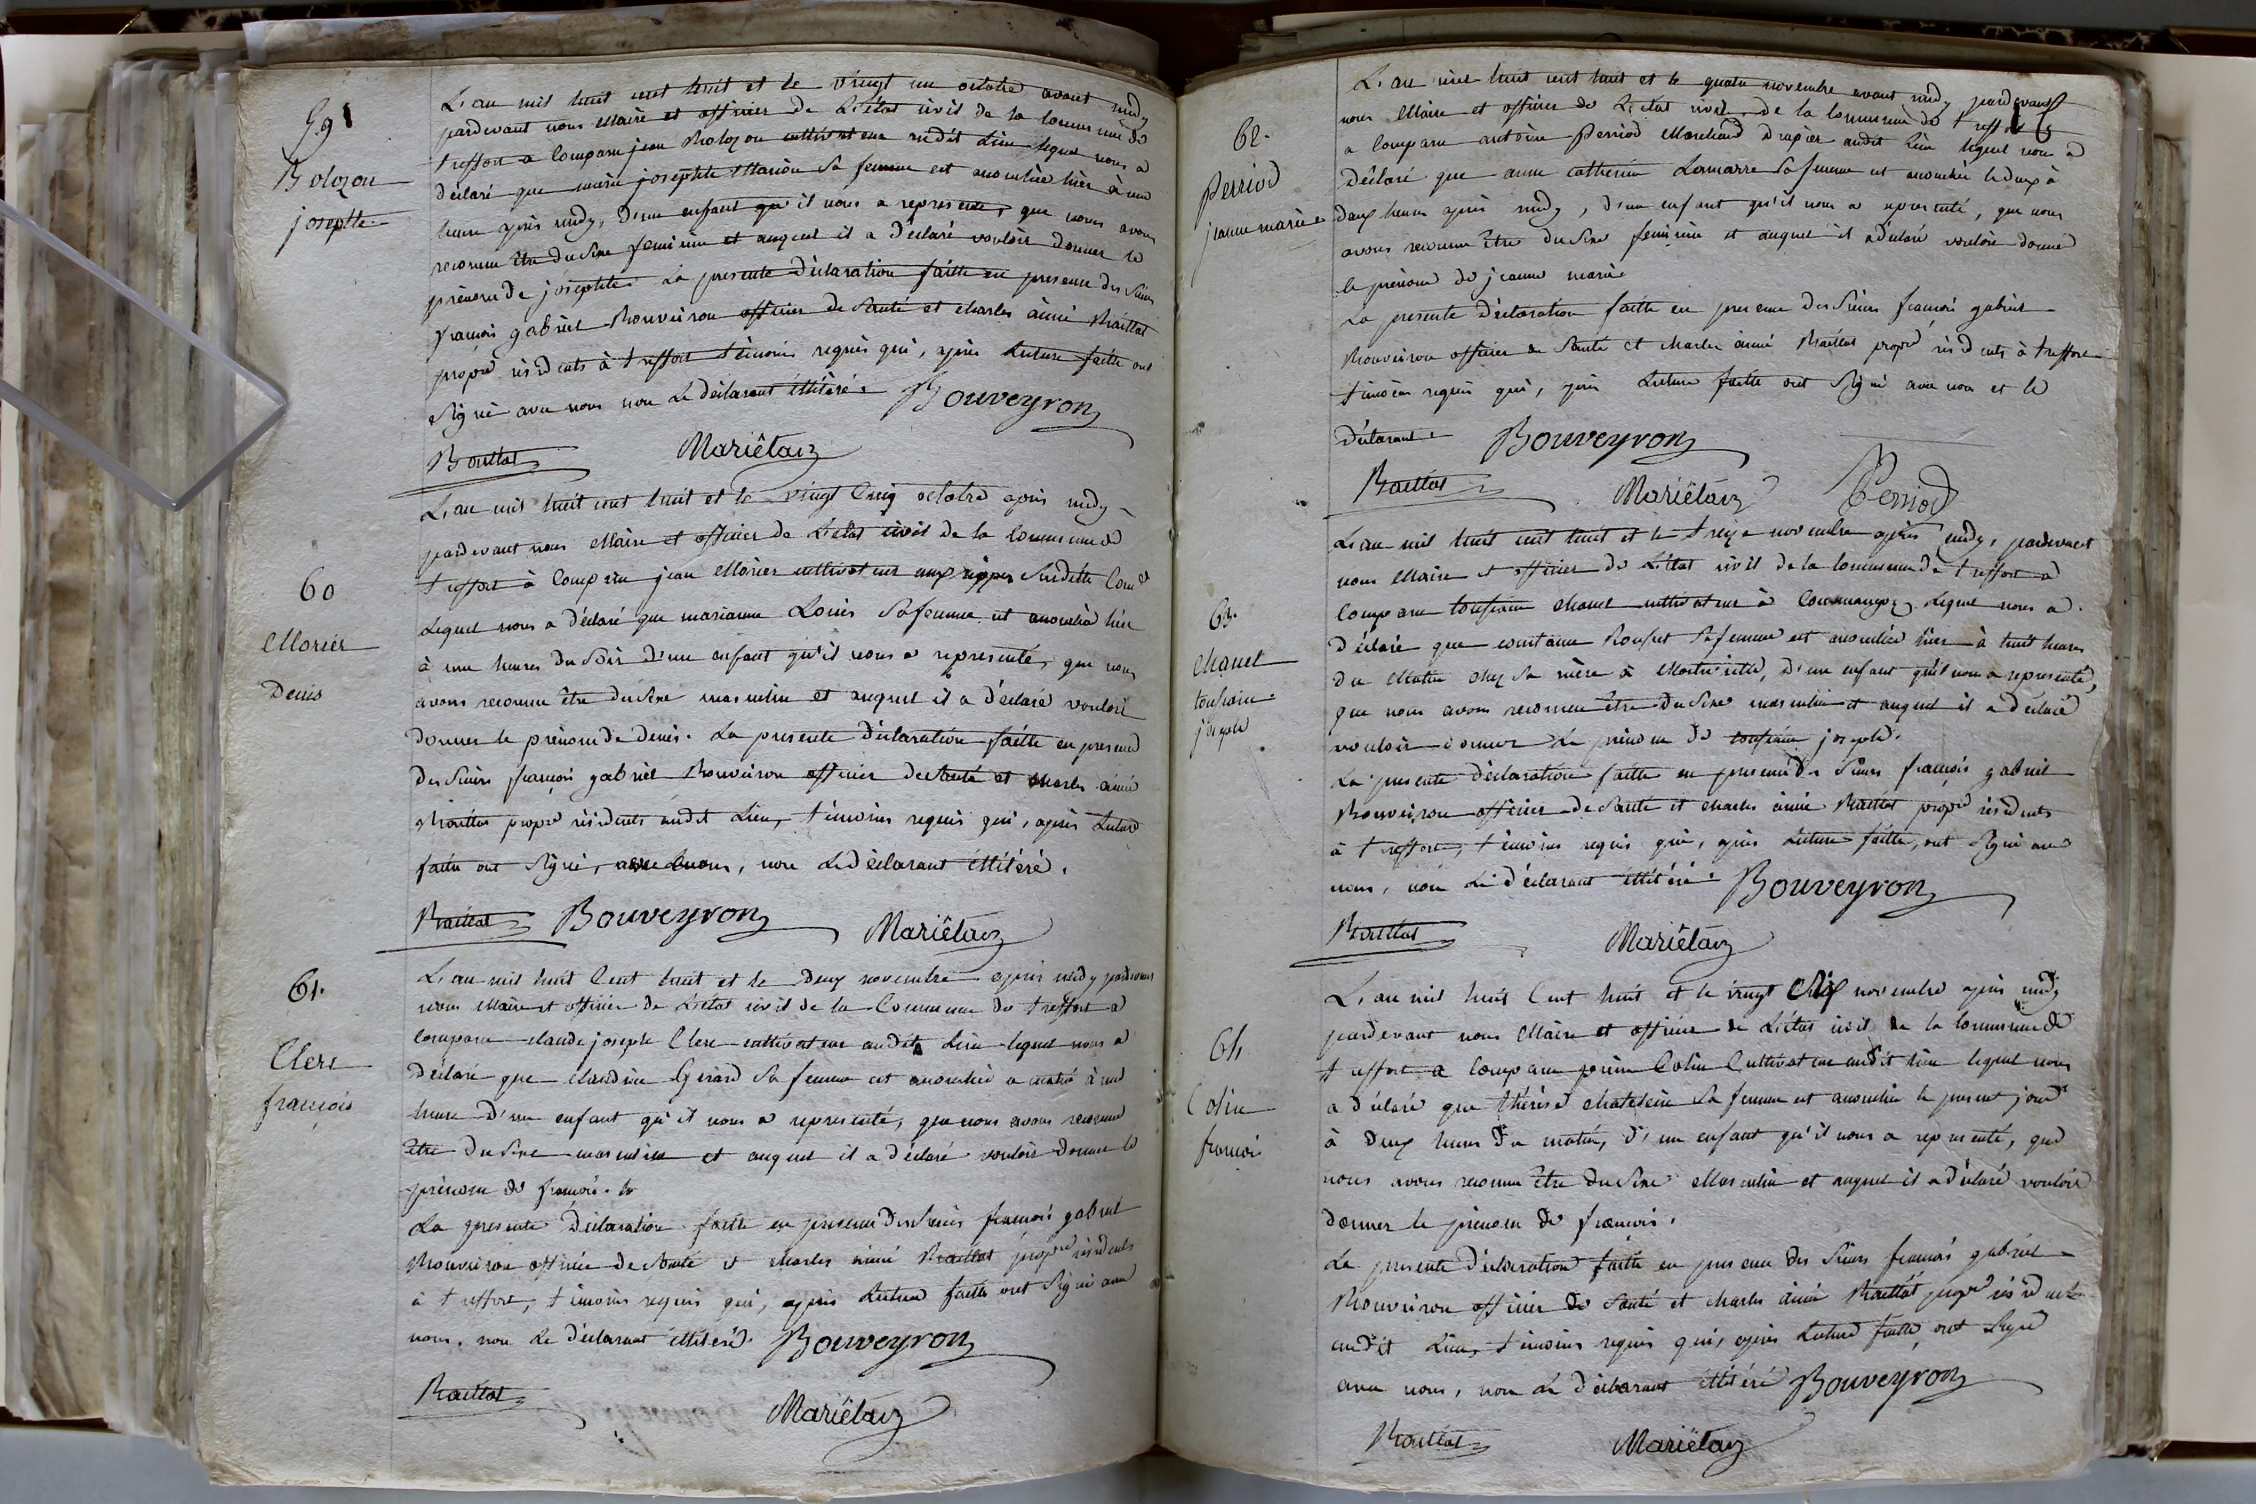 59
Bolozon
josephte
L'an mil huit cent huit et le vingt un octobre avant midy
pardevant nous Maire et officier de L'état civil de la commune de
treffort a comparu jean Bolozon cultivateur audit Lieu lequel nous a
déclaré que marie josephte Marion sa femme est accouchée hier à une
heure après midy, d'un enfant qu'il nous a representé, que nous avons
reconnu être du sexe feminin et auquel il a déclaré vouloir donner le
prénom de josephte. La presente déclaration faitte en presence des sieurs
françois gabriel Bouveiron officier de Santé et charles aimé Maillat
propre residents à treffort témoins requis qui, après Lecture faitte ont
signé avec nous non Le déclarant illitéré. Bouveyron
Mariëtan
60
Morier
Denis
L'an mil huit cent huit et le vingt cinq octobre après midy
pardevant nous Maire et officier de L'état civil de la commune de
treffort à comparu jean Morier cultivateur aux rippes sudite Come
Lequel nous a déclaré que marianne Loüis sa femme est accouchée hier
à une heures du Soir d'un enfant qu'il nous a representé, que nous
avons reconnu être du sexe masculin et auquel il a déclaré vouloir
donner le prénom de denis. La presente déclaration faitte en presence
des sieurs françois gabriel Bouveiron officier de Santé et charles aimé
propre résidents audit Lieu, témoins requis qui, après Lecture
faitte ont signé, avec nous, non Le déclarant illitéré.
Bouveyron
Mariëtan
61.
Clerc
françois
L'an mil huit Cent huit et le deux novembre après midy pardevant
nous Maire et officier de L'état civil de la Commune de treffort a
comparu claude joseph Clerc cultivateur audit Lieu lequel nous a
déclaré que claudine Girard sa femme est accouchée ce matin à une
heure d'un enfant qu'il nous a representé, que nous avons reconnu
être du sexe masculin et auquel il a déclaré vouloir donner le
prénom de françois.
La presente déclaration faitte en presence des sieurs françois gabriel
Bouveiron officier de Santé et charles aimé propre résidents
à treffort, témoins requis qui, après Lecture faitte ont signé avec
nous, non Le déclarant illitéré. Bouveyron
Mariëtan
62.
Perriod
jeanne marie
L'an mil huit cent huit et le quatre novembre avant midy pardevant
nous Maire et officier de L'état civil de la commune de treffort
a comparu antoine Perriod Marchand drapier audit Lieu lequel nous a
déclaré que anne catherine Lamarre sa femme est accouchée le deux à
deux heures après midy, d'un enfant qu'il nous a representé, que nous
avons reconnu être du sexe feminin et auquel il a déclaré vouloir donner
le prénom de jeanne marie
La presente déclaration faitte en presence des sieurs françois gabriel
Bouveiron officier de Santé et charles aimé propre résidents à treffort
témoins requis qui, après Lecture faitte ont signé avec nous et le
déclarant. Bouveyron
Mariëtan Perriod
63.
Chanel
toussain
joseph
L'an mil huit cent huit et le treize novembre après midy, pardevant
nous Maire et officier de L'état civil de la commune de treffort a
comparu toussain chanel cultivateur à Lequel nous a
déclaré que sa femme est accouchée hier à huit heures
du Matin chez sa mère à d'un enfant qu'il nous a representé,
que nous avons reconnu être du sexe masculin et auquel il a déclaré
vouloir donner Le prénom de toussain joseph.
La presente déclaration faitte en presence des sieurs françois gabriel
Bouveiron officier de Santé et charles aimé propre résidents
à treffort, témoins requis qui, après Lecture faitte, ont signé avec
nous, non Le déclarant illitéré. Bouveyron
Mariëtan
64
Colin
françois
L'an mil huit Cent huit et le vingt novembre après midy
pardevant nous Maire et officier de L'état civil de la commune de
treffort a comparu Colin Cultivateur audit lieu lequel nous
a déclaré que thérèse chatelain sa femme est accouchée le present jour
à deux heures du matin, d'un enfant qu'il nous a representé, que
nous avons reconnu être du sexe Masculin et auquel il a déclaré vouloir
donner le prénom de françois.
La presente déclaration faitte en presence des sieurs françois gabriel
Bouveiron officier de Santé et charles aimé propre résidents
audit Lieu, témoins requis qui, après Lecture faitte ont signé
avec nous, non Le déclarant illitéré Bouveyron
Mariëtan